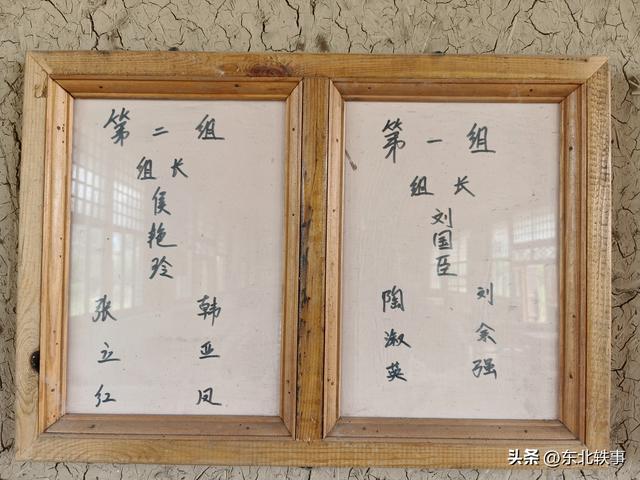 第一组
组长
刘国臣
刘余强
陶淑英
第二组
组长
侯艳玲
韩亚凤
张立红
头条 @东北轶事